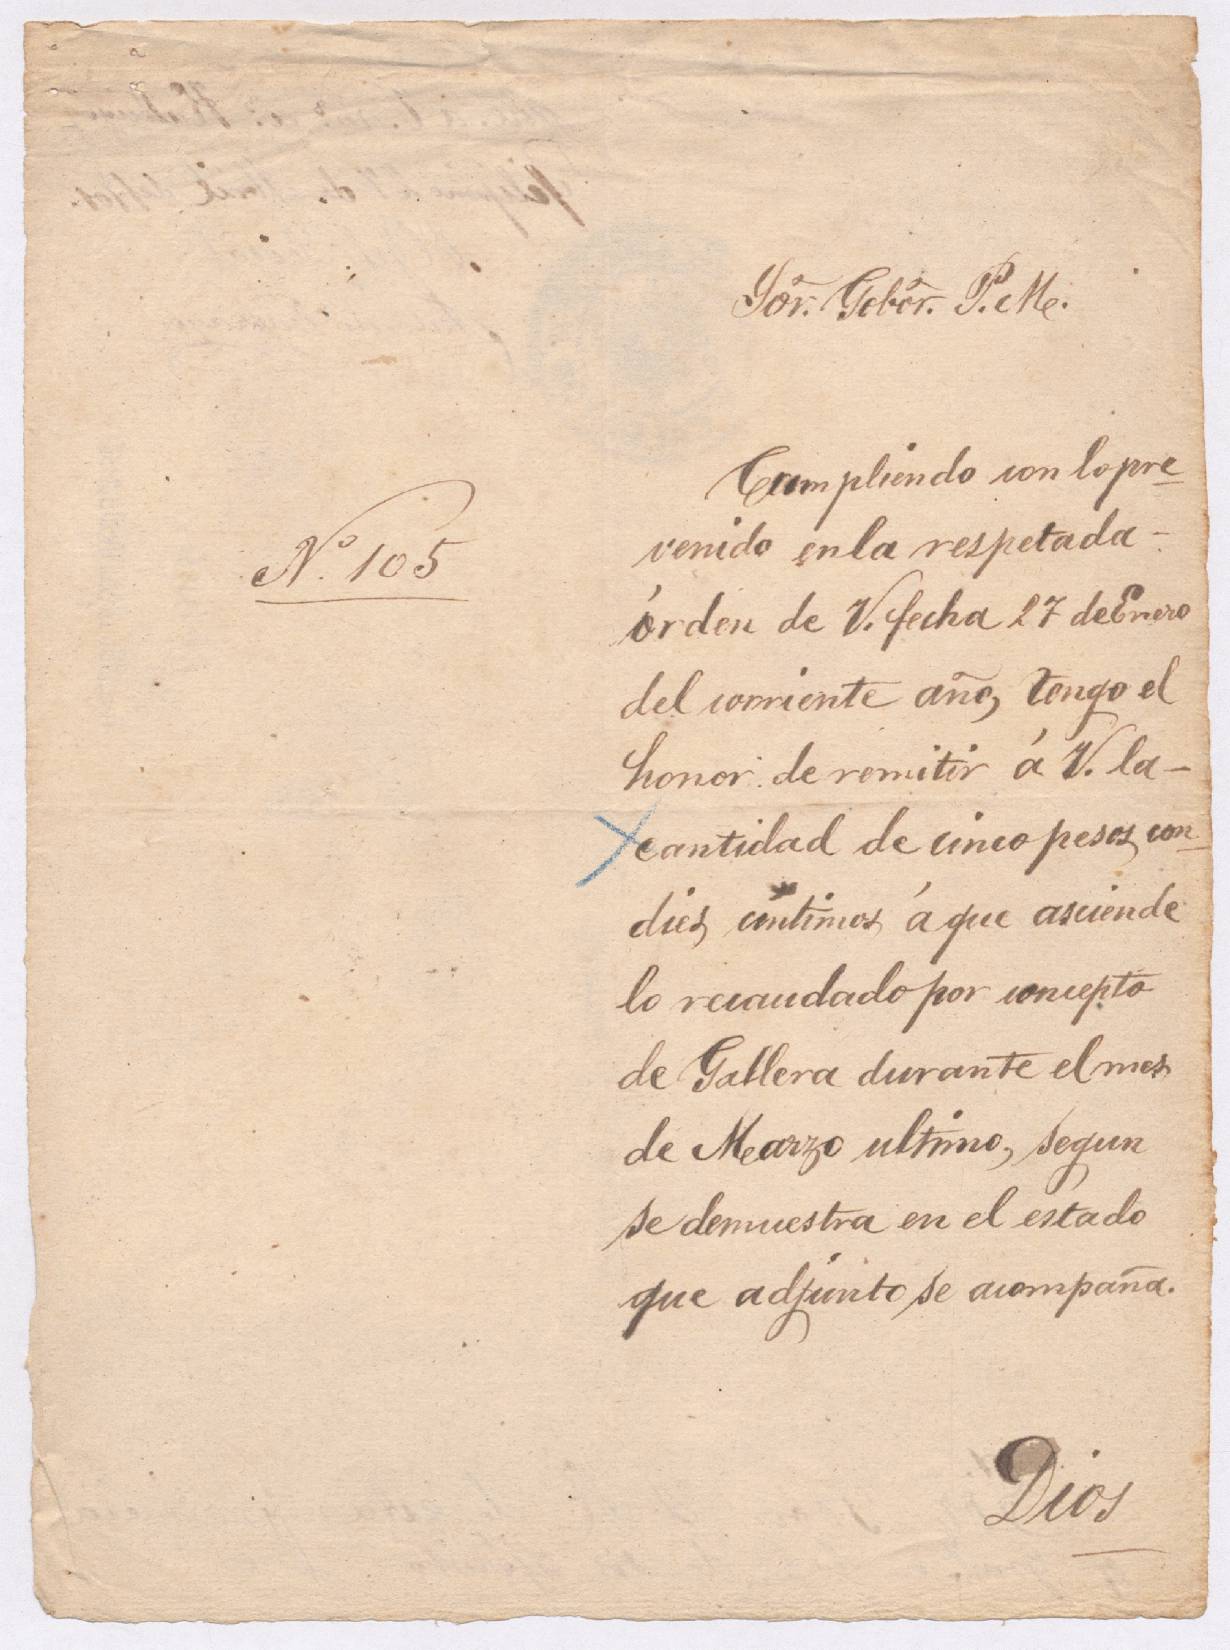 Sór. Gobór. P. M.
Nº 105
Cumpliendo con lo pre
venido en la respetada -
órden de V. fecha 27 de Enero
del corriente año, tengo el
honor de remitir á V. la -
cantidad de cinco pesos con
dies céntimos á que asciende
lo recaudado por concepto
de Gallera durante el mes
de Marzo ultimo, segun
se demuestra en el estado
que adjunto se acompaña.
Dios